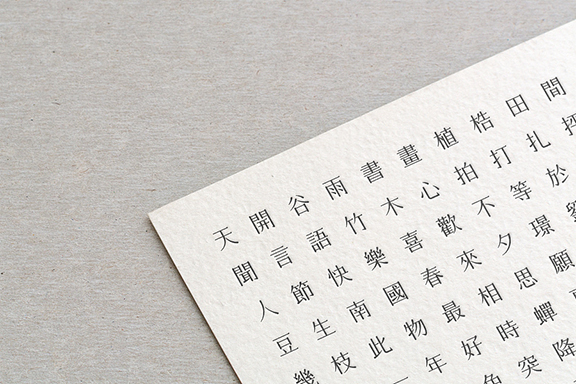 天開谷雨書畫植梏田間
聞言語竹木心拍打扎
人節快樂喜歡不等於
豆生南國春來夕璟
幾枝此物最相思願
一年好時蟬
突降